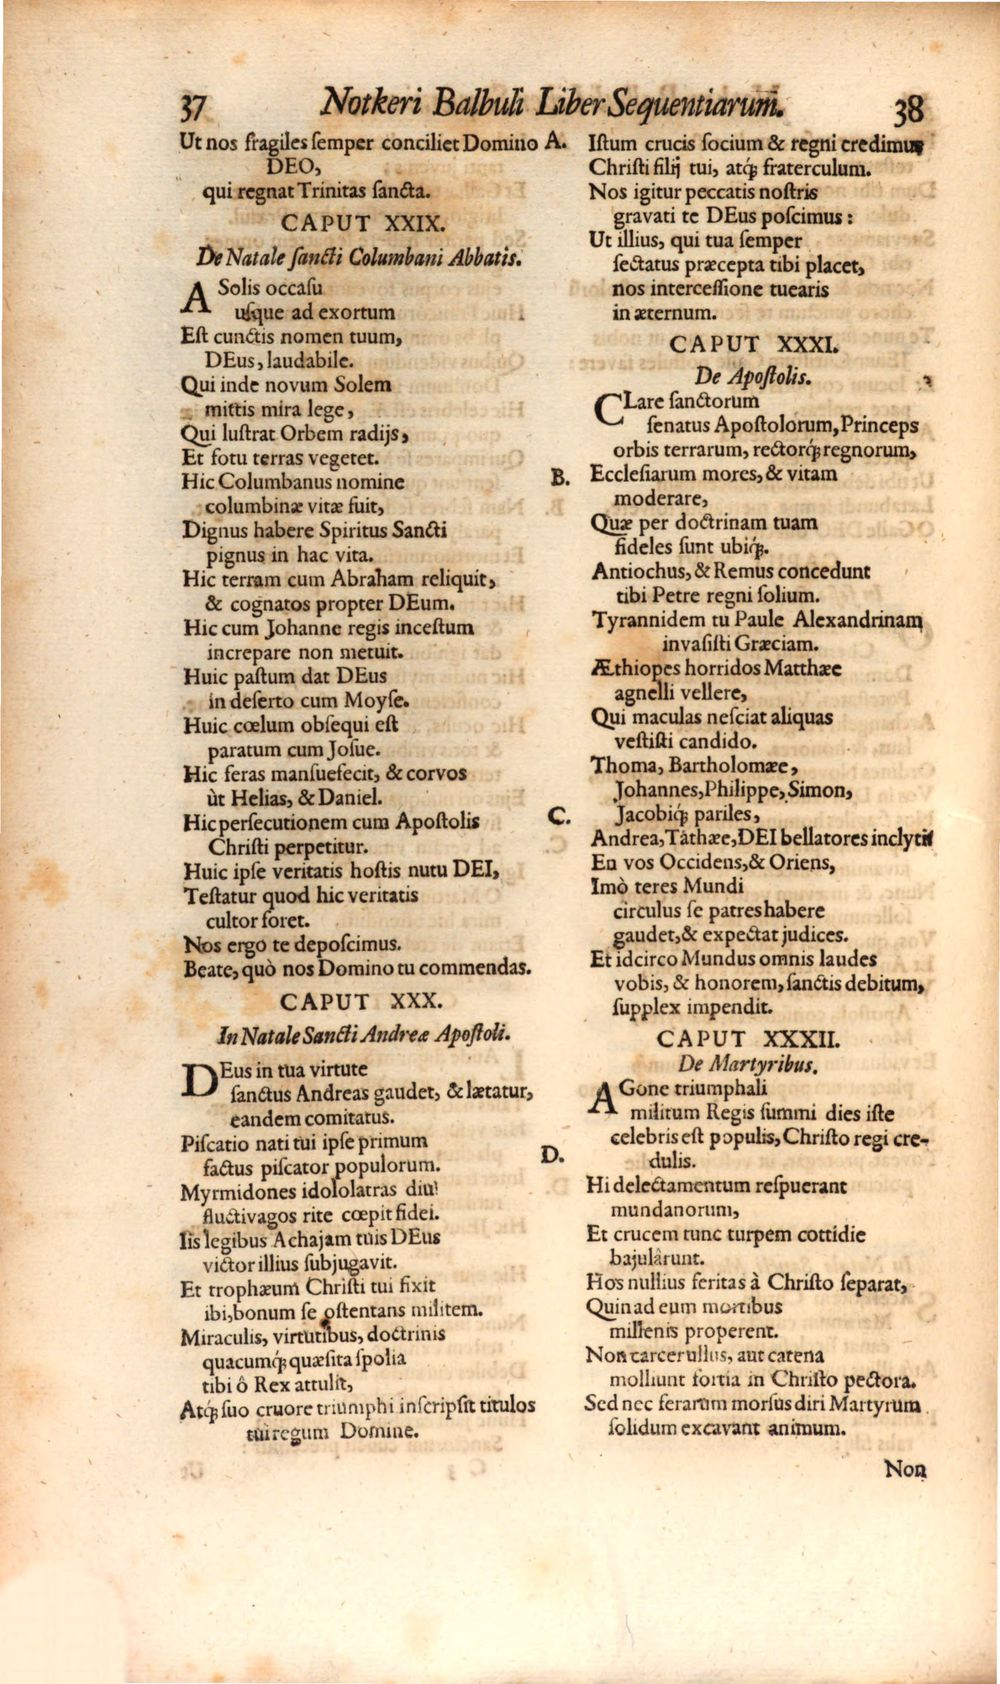 37 Notkeri Balbuli Liber Sequentiarum. 38
Ut nos fragiles semper conciliet Domino
DEO,
qui regnat Trinitas sancta.
CAPUT XXIX.
De Natale sancti Columbani Abbatis.
A Solis occasu
usque ad exortum
Est cunctis nomen tuum,
DEus, laudabile.
Qui inde novum Solem
mittis mira lege,
Qui lustrat Orbem radijs,
Et fotu terras vegetet.
Hic Columbanus nomine
columbinæ vitæ fuit,
Dignus habere Spiritus Sancti
pignus in hac vita.
Hic terram cum Abraham reliquit,
& cognatos propter DEum.
Hic cum Johanne regis incestum
increpare non metuit.
Huic pastum dat DEus
in deserto cum Moyse.
Huic cœlum obsequi est
paratum cum Josue.
Hic feras mansuefecit, & corvos
ùt Helias, & Daniel.
Hic persecutionem cum Apostolis
Christi perpetitur.
Huic ipse veritatis hostis nutu DEI,
Testatur quod hic veritatis
cultor foret.
Nos ergo te deposcimus.
Beate, quò nos Domino tu commendas.
CAPUT XXX.
In Natale Sancti Andreæ Apostoli.
DEus in tua virtute
sanctus Andreas gaudet, & lætatur,
eandem comitatus.
Piscatio nati tui ipse primum
factus piscator populorum.
Myrmidones idololatras diu
fluctivagos rite cœpit fidei.
Iis legibus Achajam tuis DEus
victor illius subjugavit.
Et trophæum Christi tui fixit
ibi, bonum se ostentans militem.
Miraculis, virtutibus, doctrinis
quacumq́; quæsita spolia
tibi ô Rex attulit,
Atq́; suo cruore triumphi inscripsit titulos
tui regum Domine.
A.
B.
C.
D.
Istum crucis socium & regni credimus
Christi filij tui, atq́; fraterculum.
Nos igitur peccatis nostris
gravati te DEus poscimus:
Ut illius, qui tua semper
sectatus præcepta tibi placet,
nos intercessione tuearis
in æternum.
CAPUT XXXI.
De Apostolis.
CLare sanctorum
senatus Apostolorum, Princeps
orbis terrarum, rectorq́; regnorum,
Ecclesiarum mores, & vitam
moderare,
Quæ per doctrinam tuam
fideles sunt ubiq́;.
Antiochus, & Remus concedunt
tibi Petre regni solium.
Tyrannidem tu Paule Alexandrinam
invasisti Græciam.
Æthiopes horridos Matthæe
agnelli vellere,
Qui maculas nesciat aliquas
vestisti candido.
Thoma, Bartholomæe,
Johannes, Philippe, Simon,
Jacobiq́; pariles,
Andrea, Tathæe, DEI bellatores inclyti
En vos Occidens, & Oriens,
Imò teres Mundi
circulus se patres habere
gaudet, & expectat judices.
Et idcirco Mundus omnis laudes
vobis, & honorem, sanctis debitum,
supplex impendit.
CAPUT XXXII.
De Martyribus.
AGone triumphali
militum Regis summi dies iste
celebris est populis, Christo regi cre-
dulis.
Hi delectamentum respuerant
mundanorum,
Et crucem tunc turpem cottidie
bajulârunt.
Hos nullius feritas à Christo separat,
Quin ad eum mortibus
millenis properent.
Non carcer ullus, aut catena
molliunt fortia in Christo pectora.
Sed nec ferarum morsus diri Martyrum
solidum excavant animum.
Non